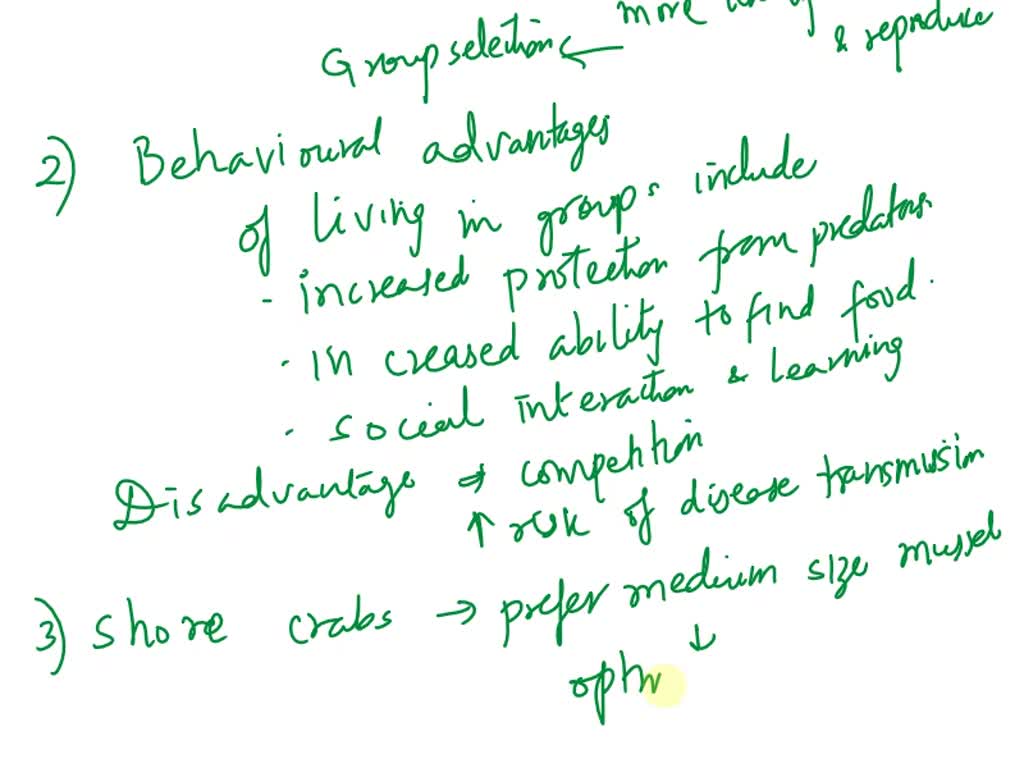 more
& reproduce
Group selection ←
2) Behavioural advantages
of living in groups include
· increased protection from predators.
· increased ability to find food.
· social interaction & learning
Disadvantage → competition
↑ risk of disease transmission
3) Shore crabs → prefer medium size mussel
↓